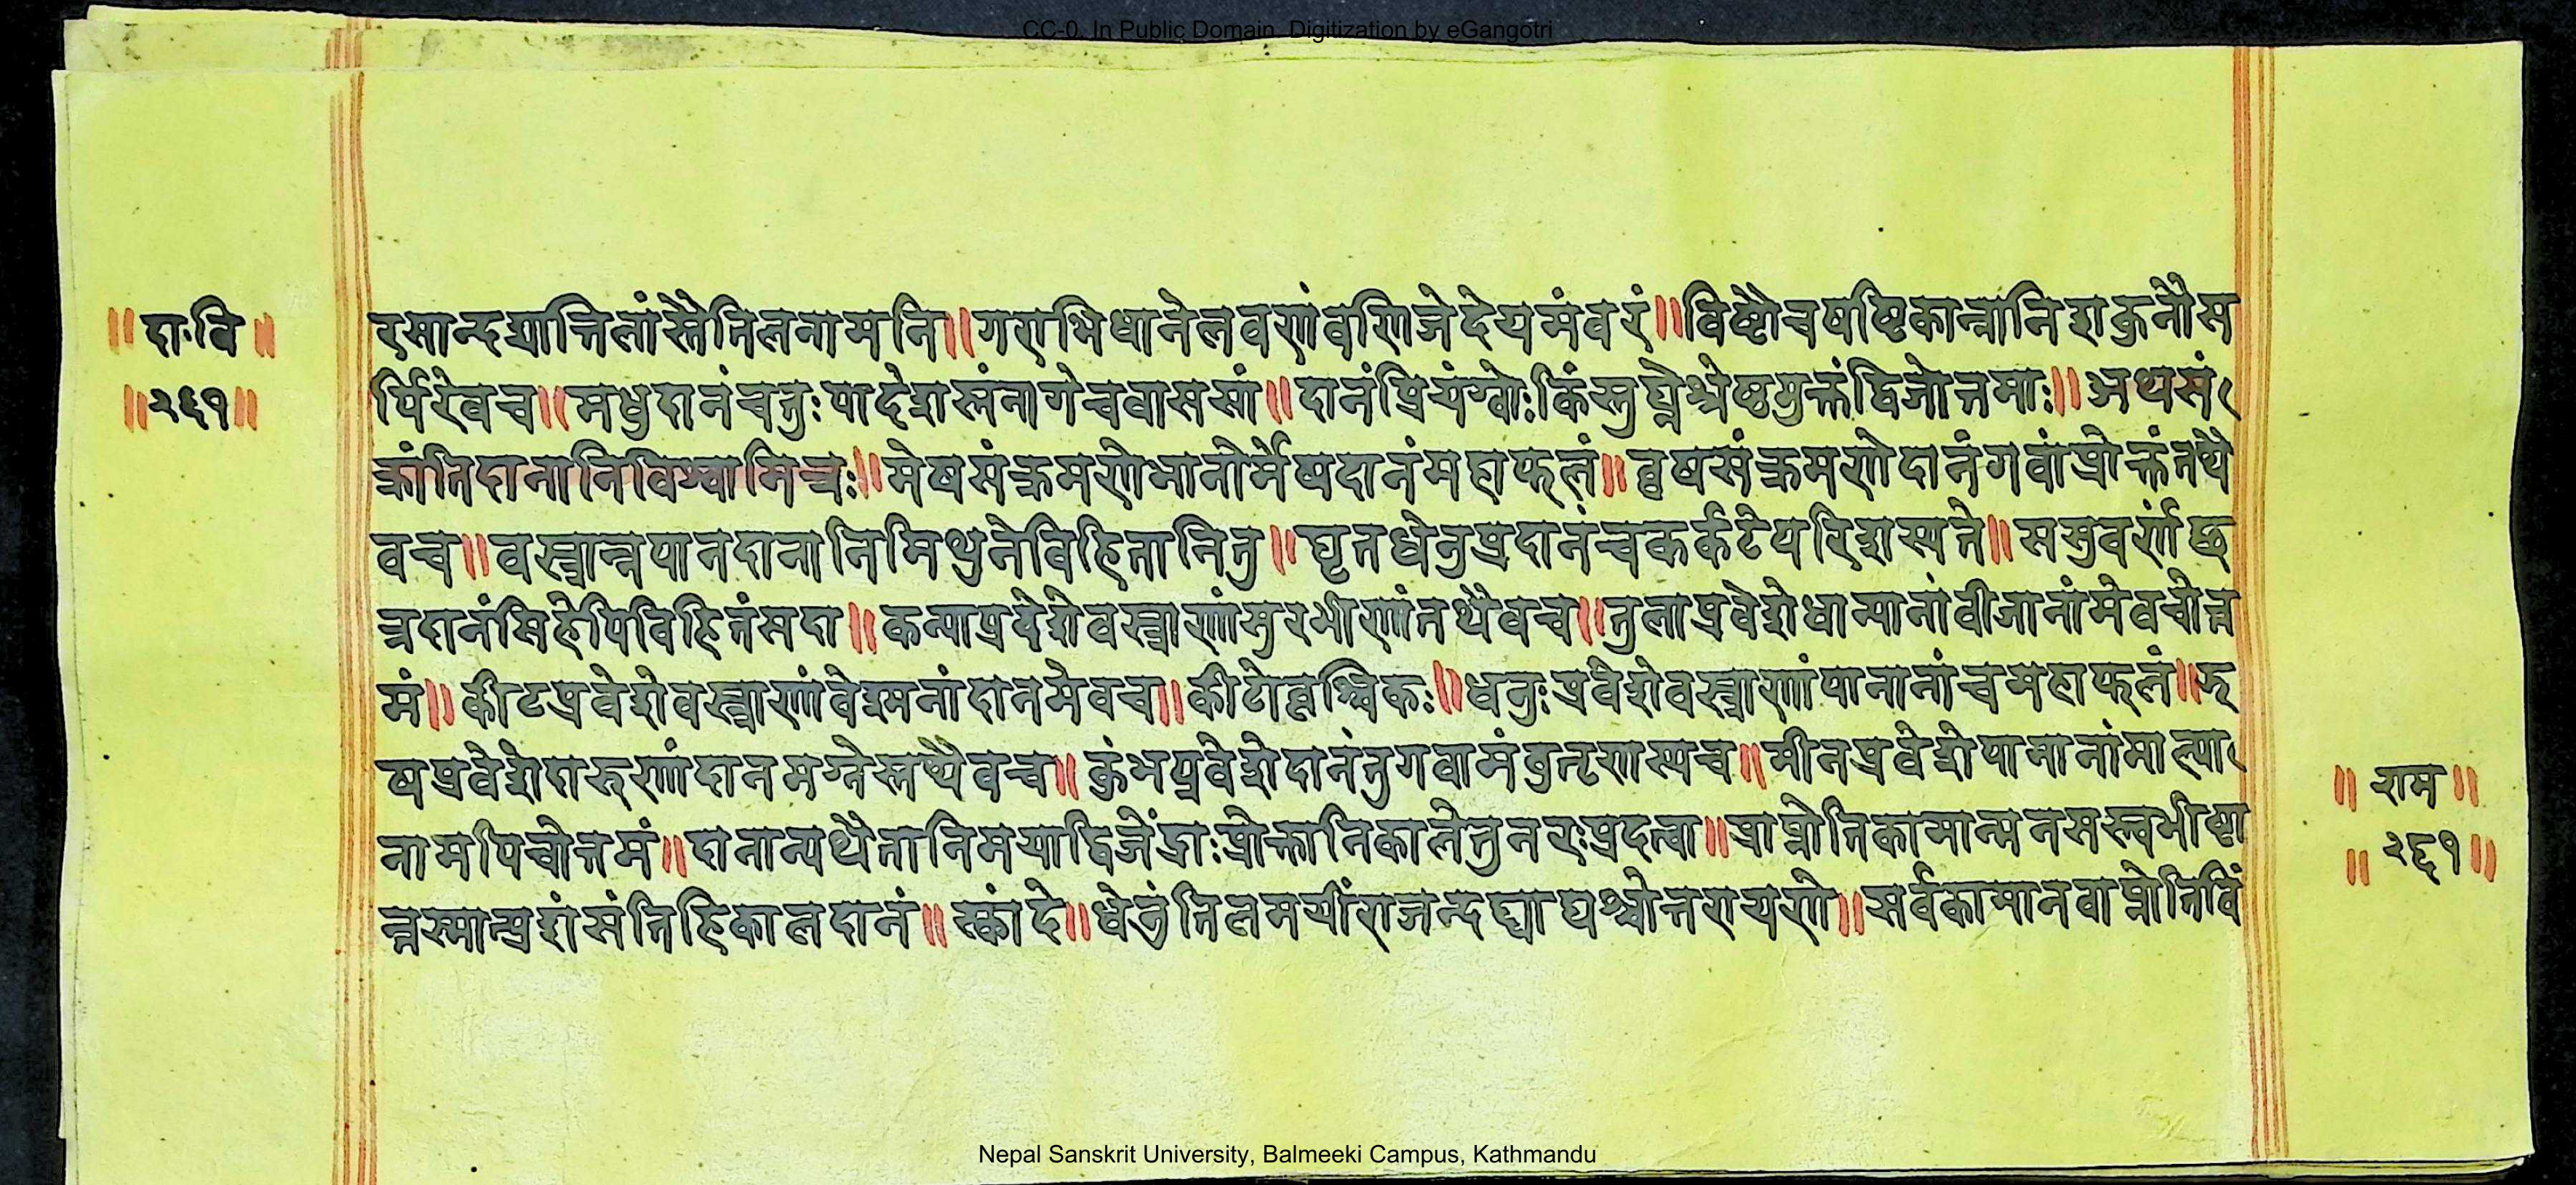 CC-0. In Public Domain. Digitization by eGangotri
॥दाःवि॥
॥२६१॥
रसान्दद्यात्तिलांस्तैतिलनामनि॥गराभिधानेलवणंवणिजेदेयमंवरं॥विष्टौचषष्टिकान्नानिशकुनौस
र्पिरेवच॥मधुदानंचतुःपादेशस्तंनागेचवाससां॥दानंप्रियंग्वोःकिंस्तुघ्नेश्रेष्ठमुक्तंद्विजोत्तमाः॥अथसं
क्रांतिदानानिविश्वामित्रः॥मेषसंक्रमणेभानोर्मेषदानंमहाफलं॥वृषसंक्रमणेदानंगवांप्रोक्तंतथै
वच॥वस्त्रान्नपानदानानिमिथुनेविहितानितु॥घृतधेनुप्रदानंचकर्कटेपरिशस्यते॥ससुवर्णंछ
त्रदानंसिंहेपिविहितंसदा॥कन्याप्रवेशेवस्त्राणांसुरभीणांतथैवच॥तुलाप्रवेशेधान्यानांवीजानांमेवचोत्त
मं॥कीटप्रवेशेवस्त्राणांवेश्मनांदानमेवच॥कीटोवृश्चिकः॥धनुःप्रवेशेवस्त्राणांपानानांचमहाफलं॥झ
षप्रवेशेदारुणांदानमग्नेस्तथैवच॥कुंभप्रवेशेदानंतुगवामंवुतृणस्यच॥मीनप्रवेशेपामानांमाल्या
नामपिचोत्तमं॥दानान्यथैतानिमयाद्विजेंद्राःप्रोक्तानिकालेतुनरःप्रदत्वा॥प्राप्नोतिकामान्मनसस्त्वभीष्टा
न्तस्मात्प्रशंसंतिहिकालदानं॥स्कांदे॥धेनुंतिलमयींराजन्दद्याद्यश्चोत्तरायणे॥सर्वकामानवाप्नोतिविं
॥राम॥
॥२६१॥
Nepal Sanskrit University, Balmeeki Campus, Kathmandu